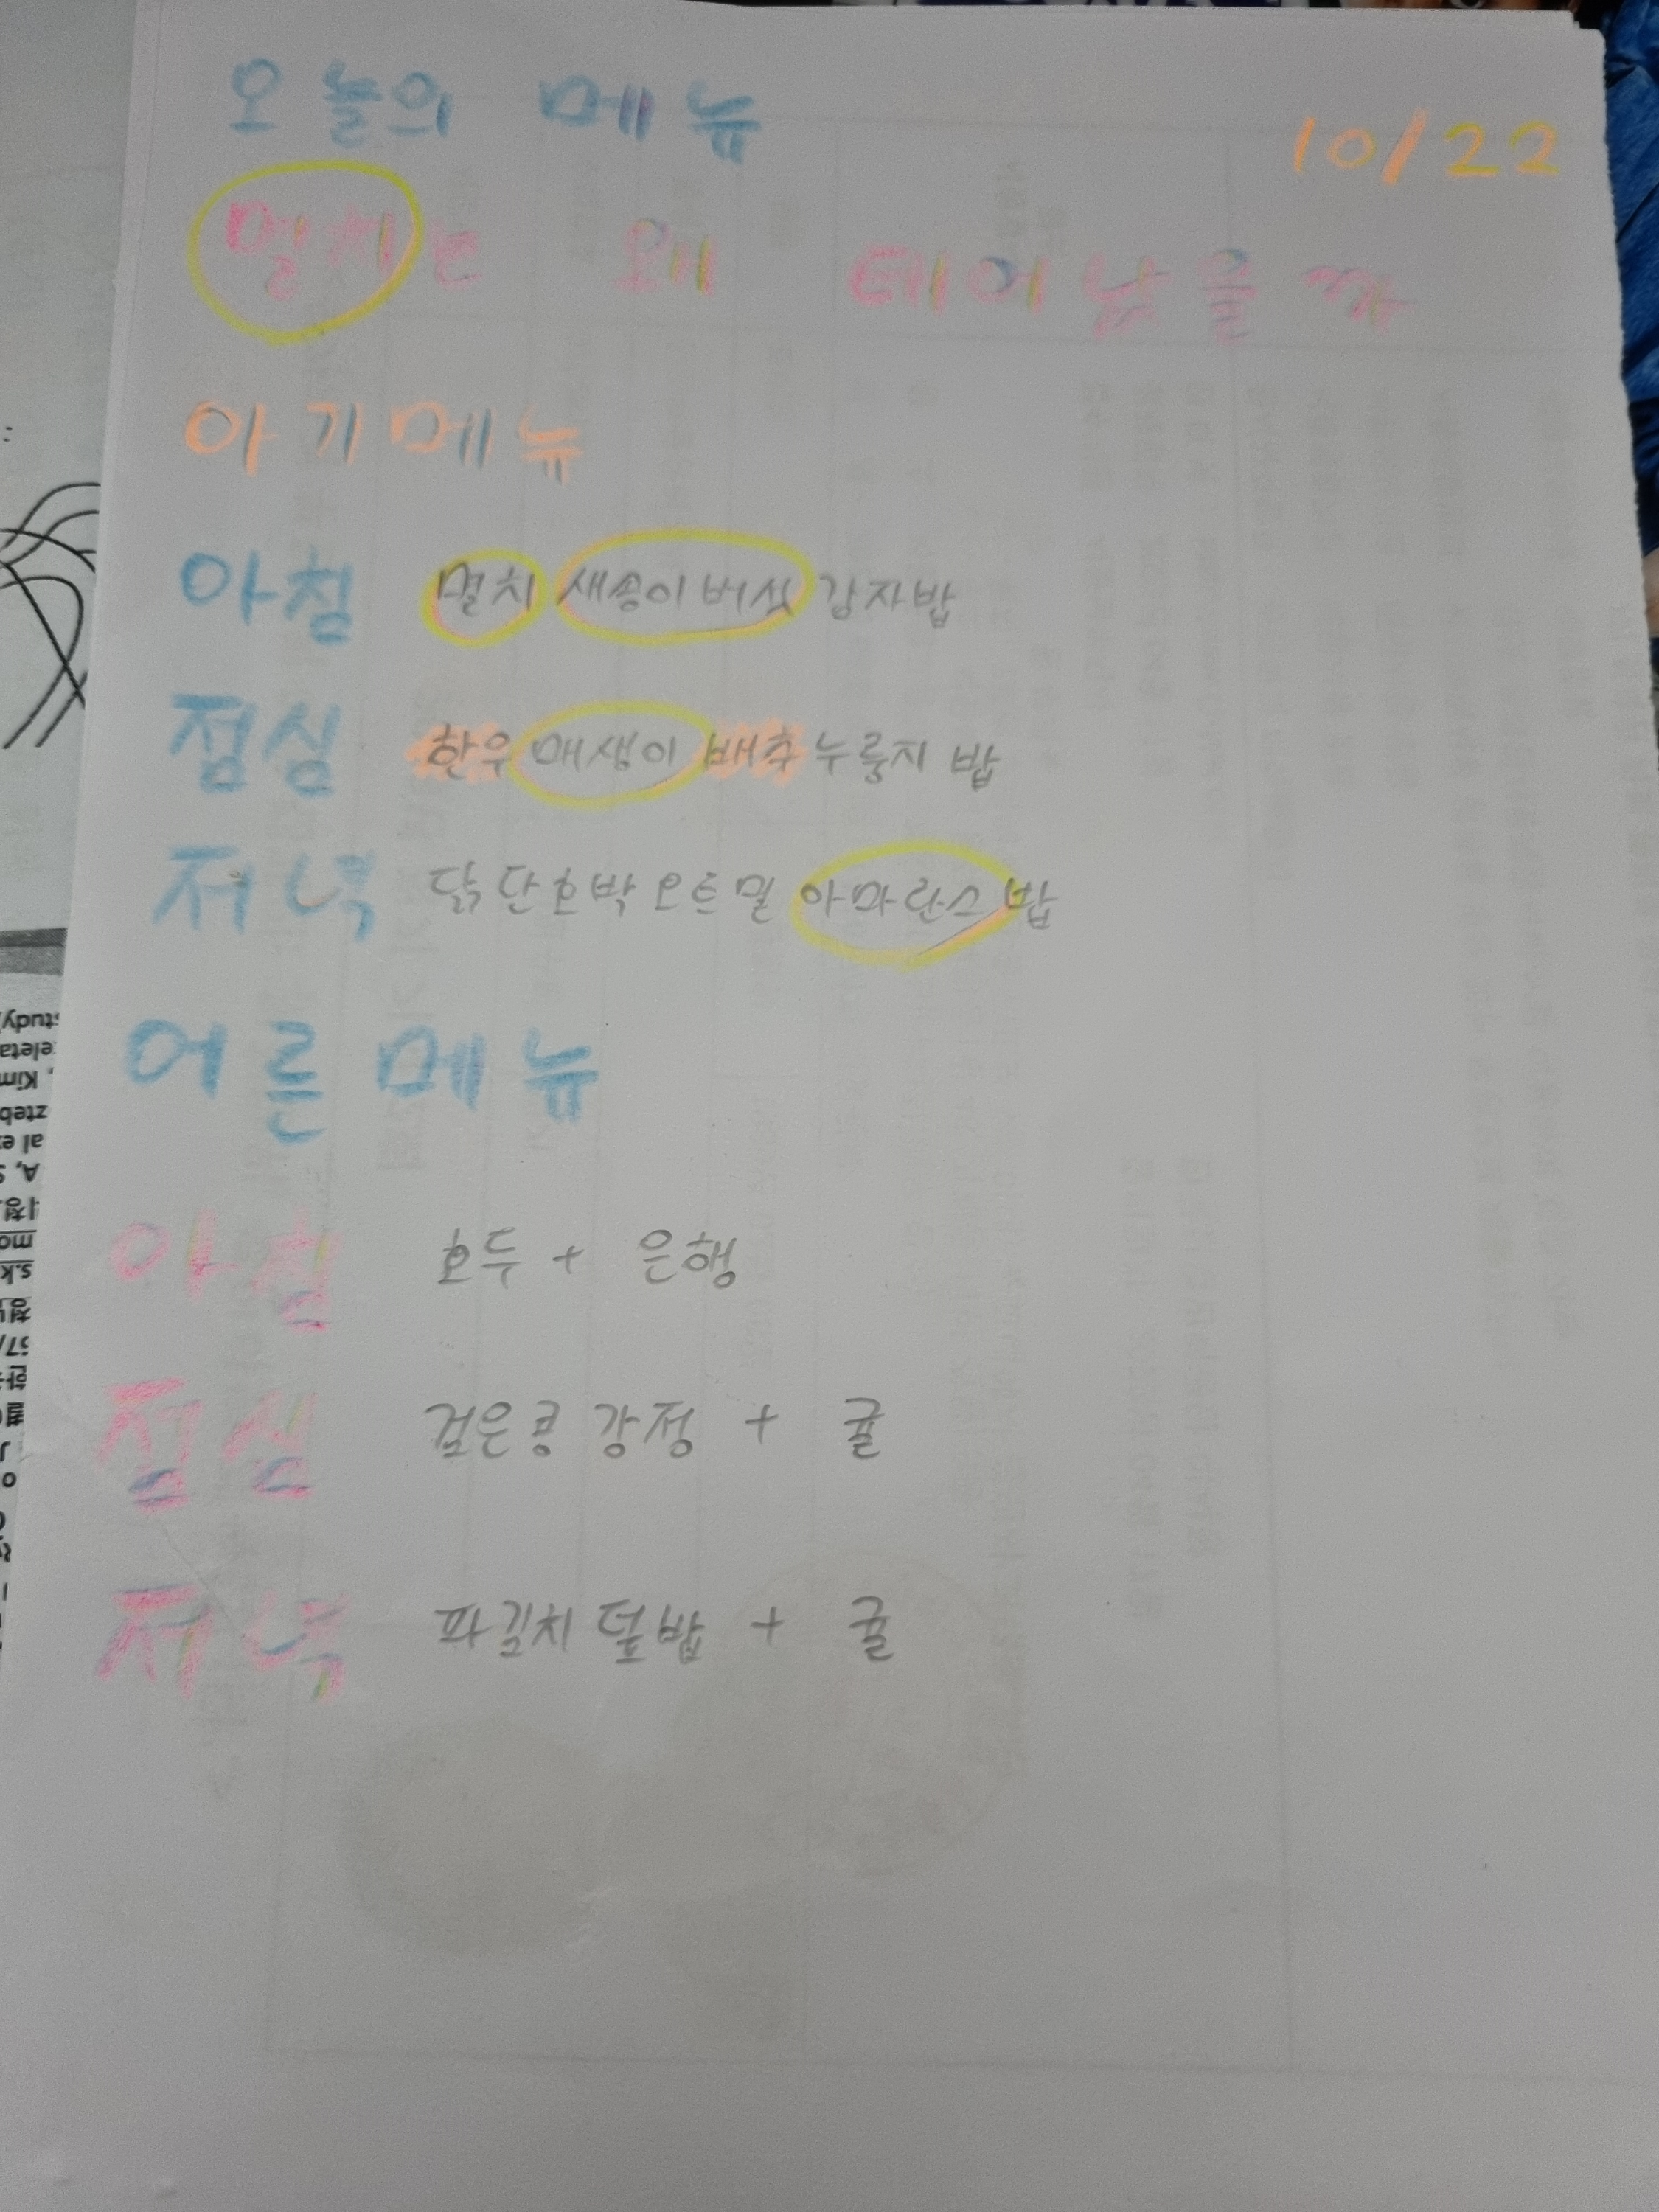 오늘의 메뉴
10/22
멸치는 왜 태어났을까
아기메뉴
아침 멸치 새송이버섯 감자밥
점심 한우 매생이 배추 누룽지 밥
저녁 닭 단호박 오트밀 아마란스 밥
어른메뉴
아침 호두 + 은행
점심 검은콩 강정 + 귤
저녁 파김치 덮밥 + 귤